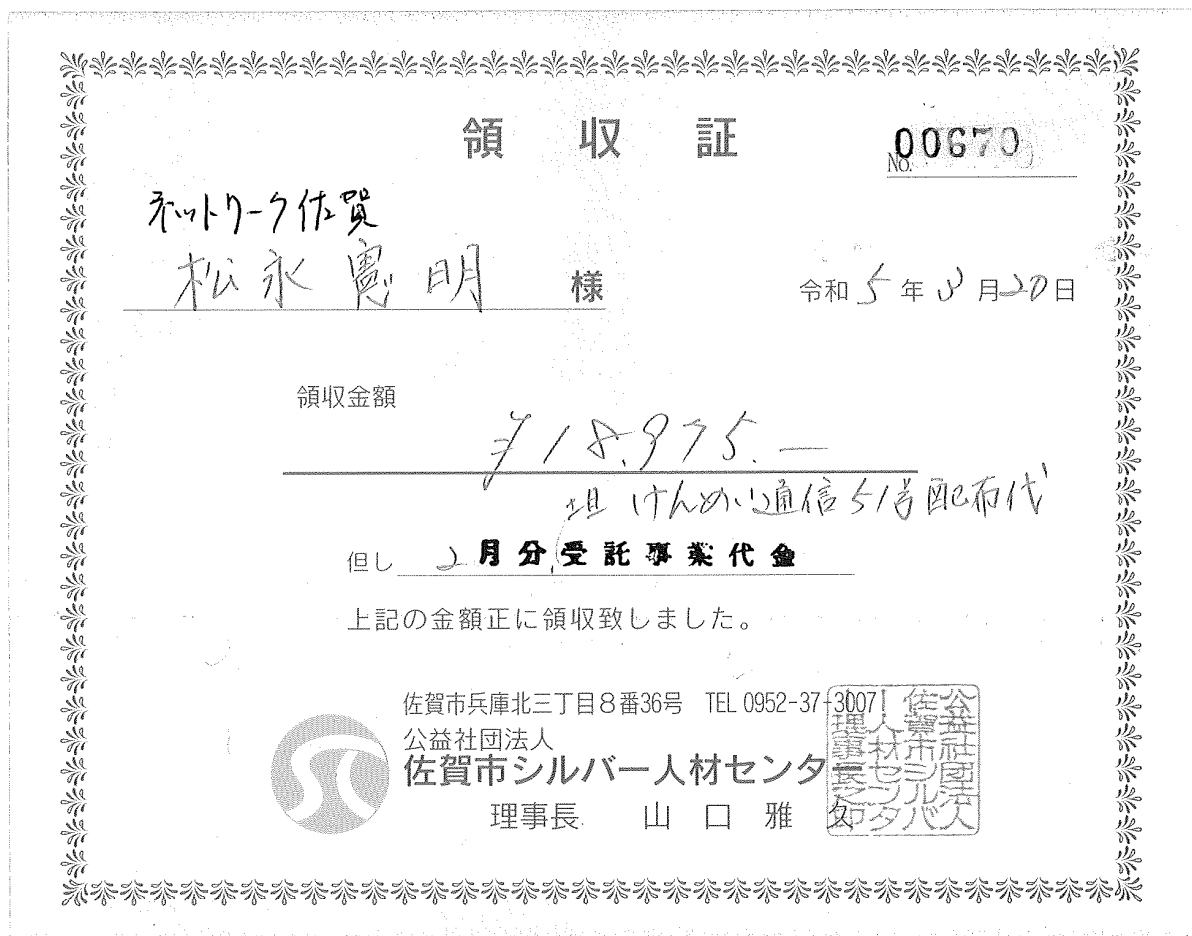 領収証
No. 00670
ネットワーク佐賀
松永憲明 様
令和5年3月20日
領収金額
¥18,975.―
但 けんめい通信51号配布代
但し 2月分受託事業代金
上記の金額正に領収致しました。
佐賀市兵庫北三丁目8番36号 TEL 0952-37-3007
公益社団法人
佐賀市シルバー人材センター
理事長 山口雅久
公益社団法人
佐賀市シルバ
ー人材センタ
ー理事長之印